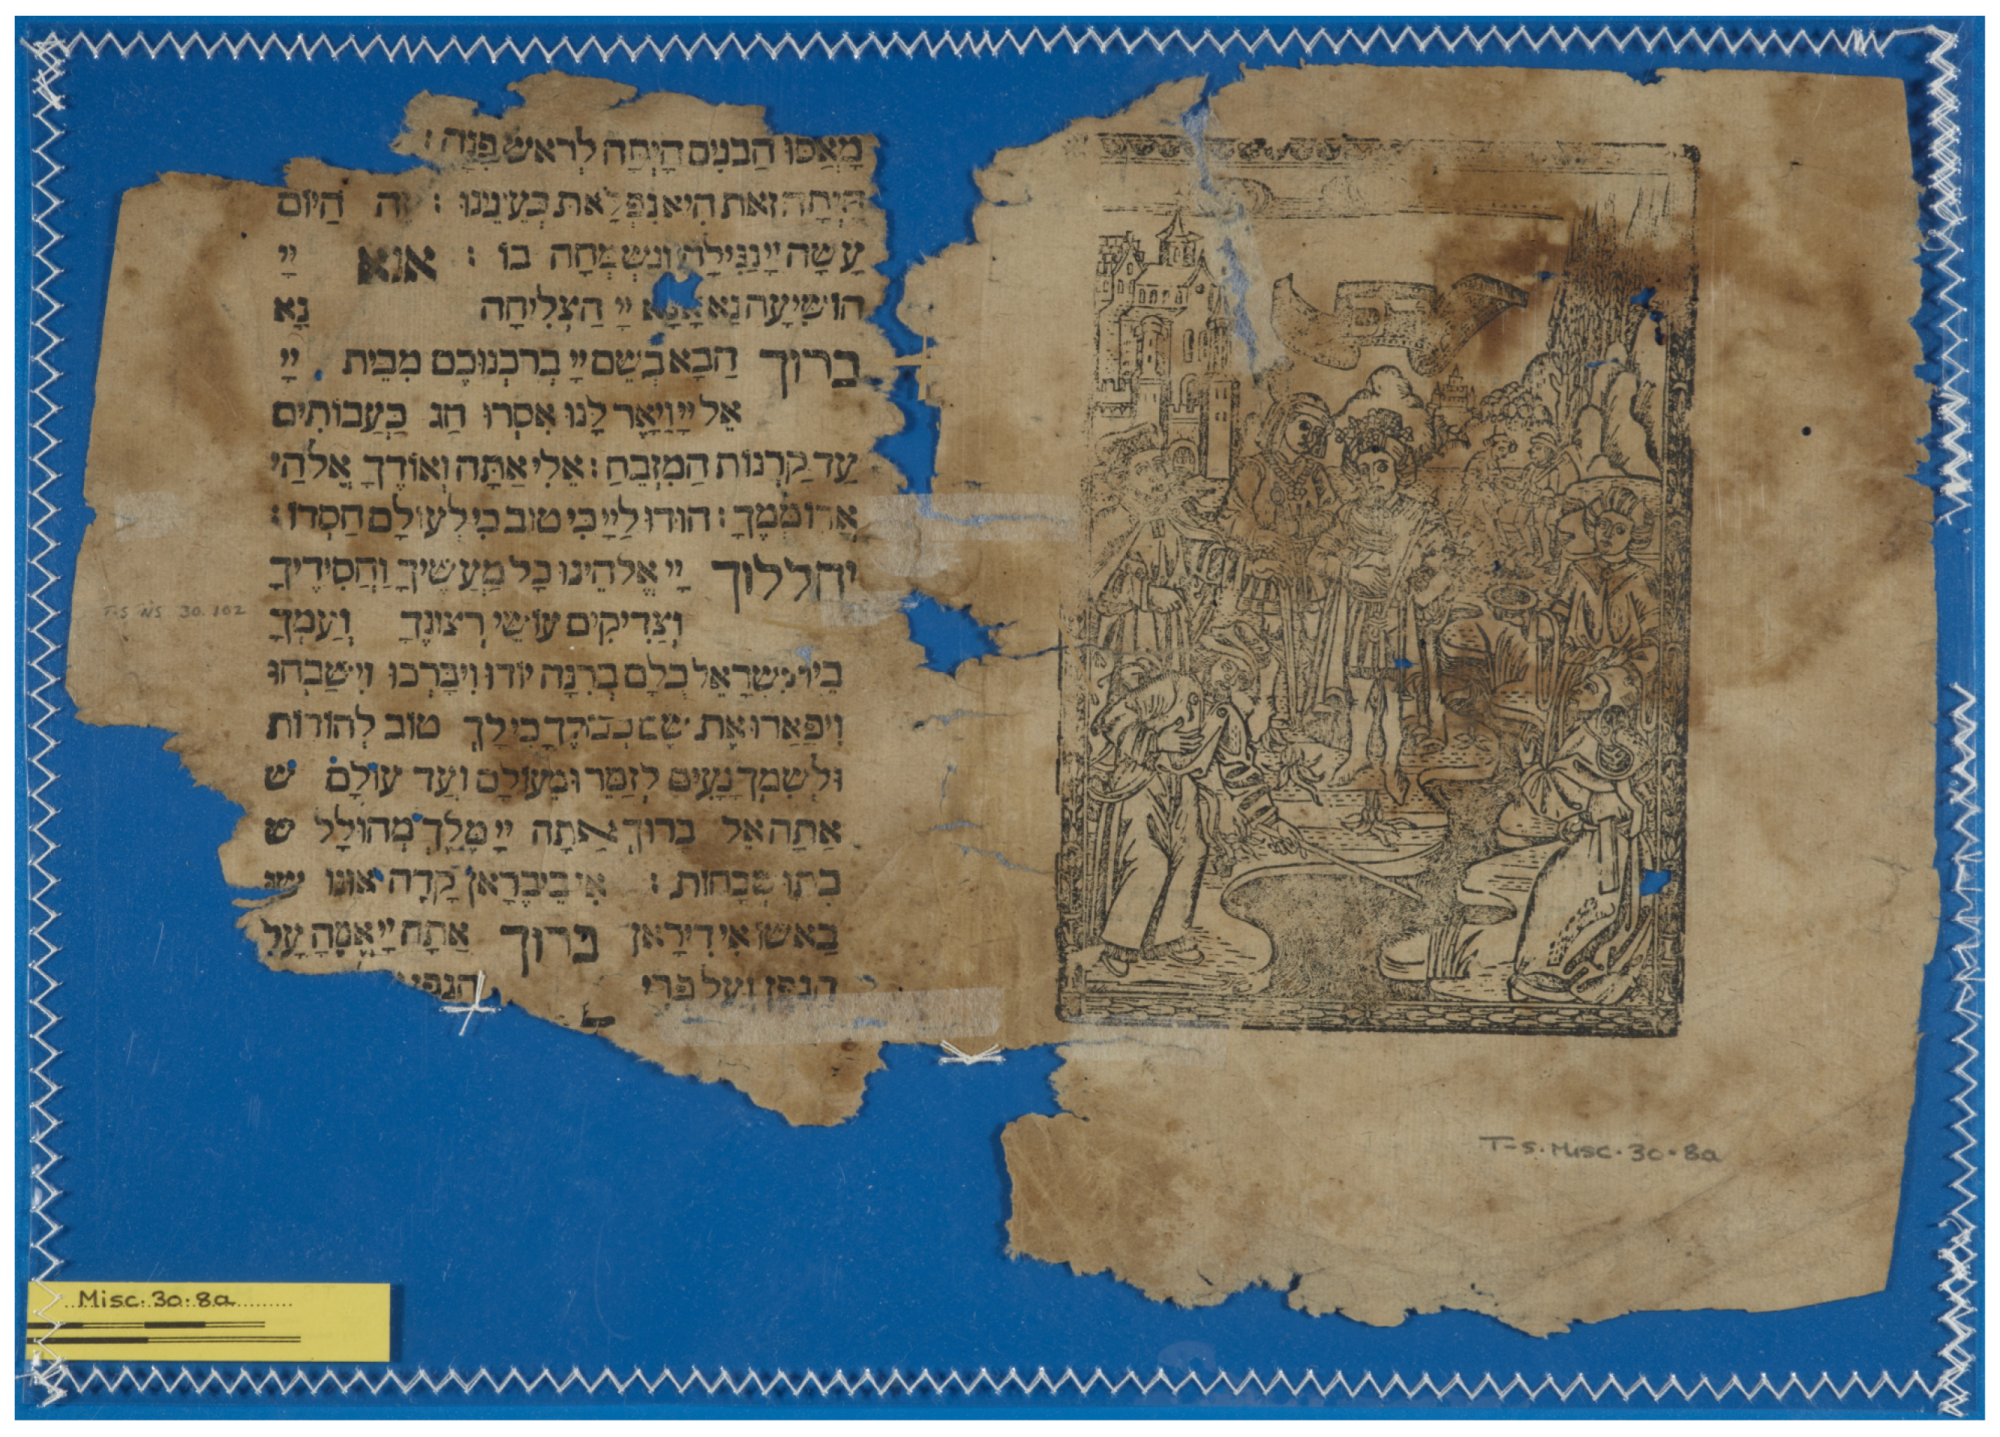 מָאֲסוּ הַבּוֹנִים הָיְתָה לְרֹאשׁ פִּנָּה :
הָיְתָה זֹאת הִיא נִפְלָאת בְּעֵינֵינוּ : זֶה הַיּוֹם
עָשָׂה יְיָ נָגִילָה וְנִשְׂמְחָה בוֹ : אנא יְיָ
הוֹשִׁיעָה נָא אָנָּא יְיָ הַצְלִיחָה נָא
ברוך הַבָּא בְּשֵׁם יְיָ בֵּרַכְנוּכֶם מִבֵּית יְיָ
אֵל יְיָ וַיָּאֶר לָנוּ אִסְרוּ חַג בַּעֲבוֹתִים
עַד קַרְנוֹת הַמִּזְבֵּחַ : אֵלִי אַתָּה וְאוֹדֶךָּ אֱלֹהַי
אֲרוֹמְמֶךָּ : הוֹדוּ לַייָ כִּי טוֹב כִּי לְעוֹלָם חַסְדּוֹ :
יהללוך יְיָ אֱלֹהֵינוּ כָּל מַעֲשֶׂיךָ וַחֲסִידֶיךָ
וְצַדִּיקִים עוֹשֵׂי רְצוֹנֶךָ וְעַמְּךָ
בֵּית יִשְׂרָאֵל כֻּלָּם בְּרִנָּה יוֹדוּ וִיבָרְכוּ וִישַׁבְּחוּ
וִיפָאֲרוּ אֶת שֵׁם כְּבוֹדֶךָ כִּי לְךָ טוֹב לְהוֹדוֹת
וּלְשִׁמְךָ נָעִים לְזַמֵּר וּמֵעוֹלָם וְעַד עוֹלָם ש
אַתָּה אֵל בָּרוּךְ אַתָּה יְיָ מֶלֶךְ מְהוּלָּל ש
בַּתִּשְׁבָּחוֹת : אִי בֵיבֵרָאן קָדָה אונו שו
בָאשו אִי דִירָאן ברוך אַתָּה יְיָ אֱמֶה עַל
הַגֶּפֶן וְעַל פְּרִי הַגֶּפֶן
T-S NS 30.102
T-S. Misc. 30.8a
Misc. 30.8a